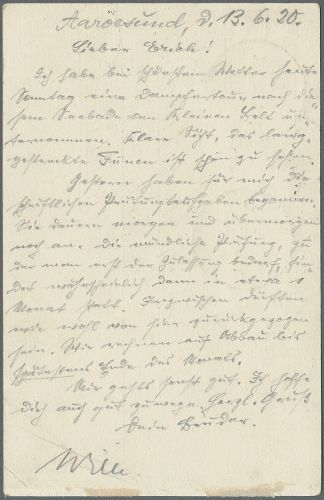 Aarösund, d. 13.6.20.
Lieber Erich!
Ich habe bei schönstem Wetter heute
Sonntag eine Dampfertour nach die-
sem Seebade am Kleinen Belt un-
ternommen. Klare Sicht, das lang-
gestreckte Fünen ist schön zu sehen.
Gestern haben für mich die
schriftlichen Prüfungsaufgaben begonnen.
Sie dauern morgen und übermorgen
noch an. Die mündliche Prüfung, zu
der man erst der Zulassung bedarf, fin-
det wahrscheinlich dann in etwa 1
Monat statt. Inzwischen dürften
wir wohl von hier zurückgezogen
sein. Wir rechnen auf Abbau bis
spätestens Ende des Monats.
Mir gehts sonst gut. Ich hoffe
dich auch gut zuwege. Herzl. Gruß
Dein Bruder.
Willi.